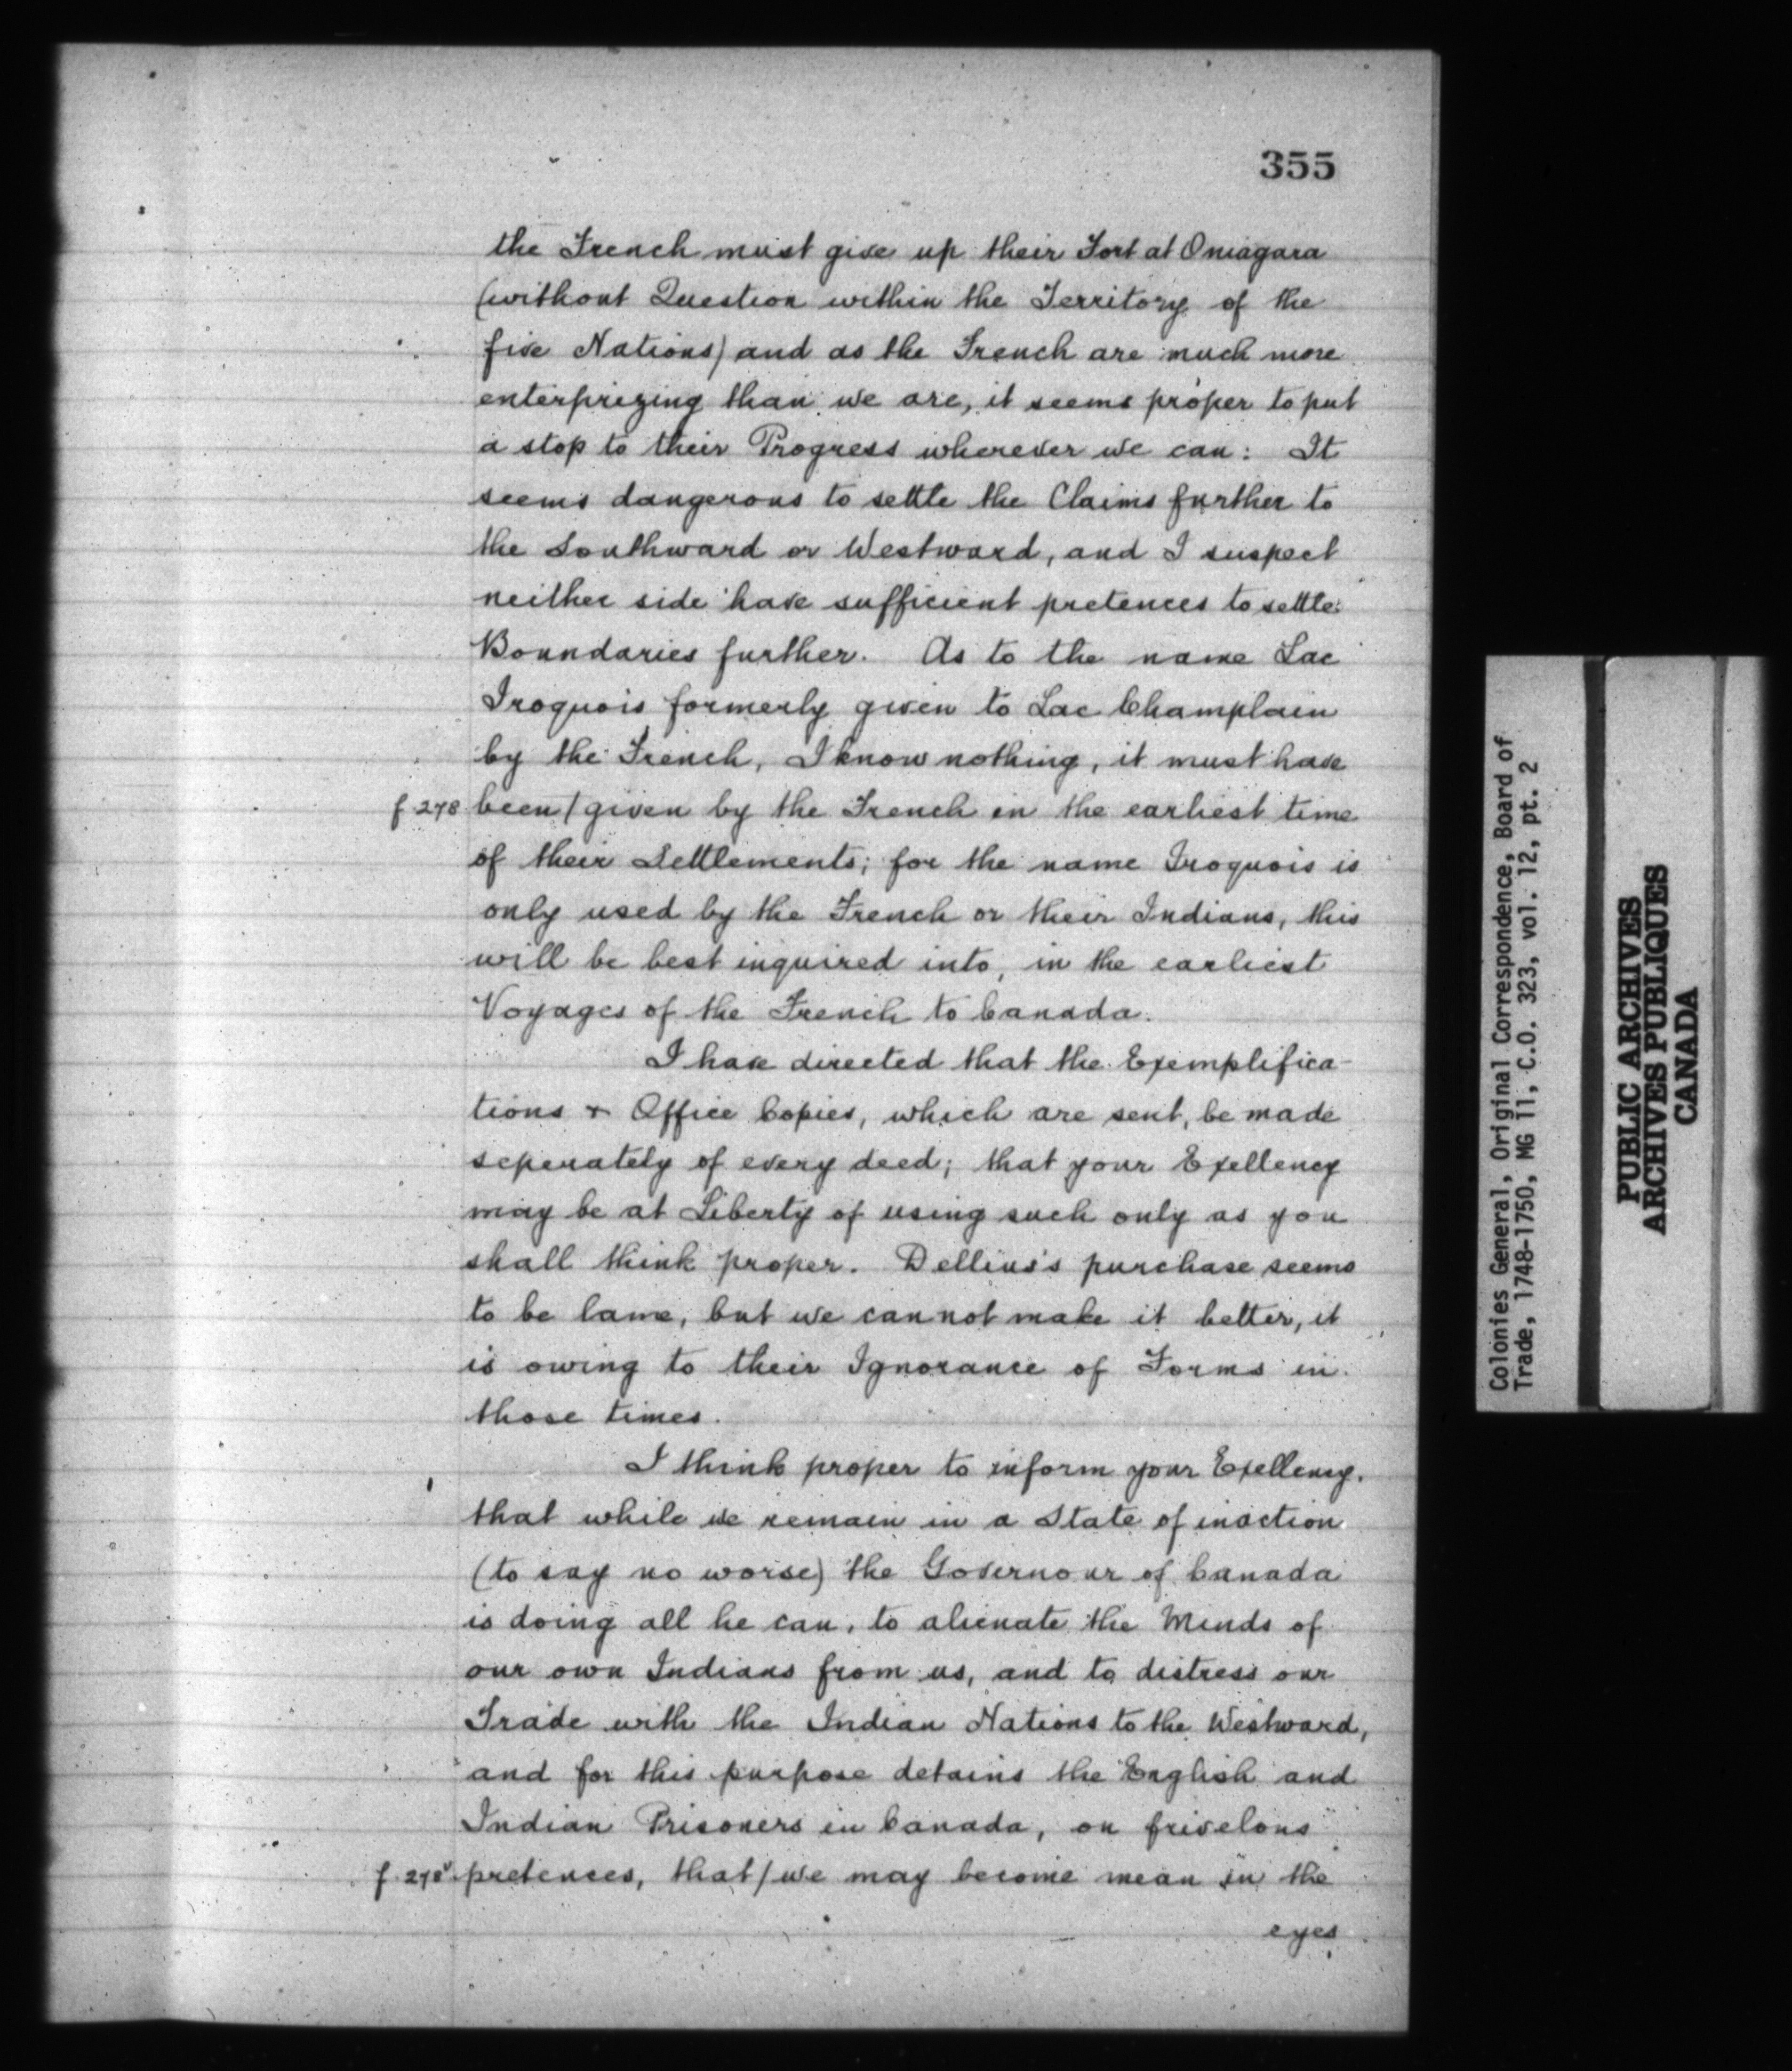 355
the French must give up their Fort at Oniagara
(without Question within the Territory of the
five Nations) and as the French are much more
enterprizing than we are, it seems proper to put
a stop to their Progress wherever we can: It
seems dangerous to settle the Claims further to
the Southward or Westward, and I suspect
neither side have sufficient pretences to settle
Boundaries further. As to the name Lac
Iroquois formerly given to Lac Champlain
by the French, I know nothing, it must have
f 278 been/given by the French in the earliest time
of their Settlements; for the name Iroquois is
only used by the French or their Indians, this
will be best inquired into, in the earliest
Voyages of the French to Canada.
I have directed that the Exemplifica-
tions & Office Copies, which are sent, be made
seperately of every deed; that your Exellency
may be at Liberty of using such only as you
shall think proper. Dellius's purchase seems
to be lame, but we cannot make it better, it
is owing to their Ignorance of Forms in
those times.
I think proper to inform your Exellency.
that while we remain in a State of inaction
(to say no worse) the Governour of Canada
is doing all he can, to alienate the Minds of
our own Indians from us, and to distress our
Trade with the Indian Nations to the Westward,
and for this purpose detains the English and
Indian Prisoners in Canada, on frivelous
f 278v pretences, that/we may become mean in the
eyes
Colonies General, Original Correspondence, Board of
Trade, 1748-1750, MG 11, C.O. 323, vol. 12, pt. 2
PUBLIC ARCHIVES
ARCHIVES PUBLIQUES
CANADA